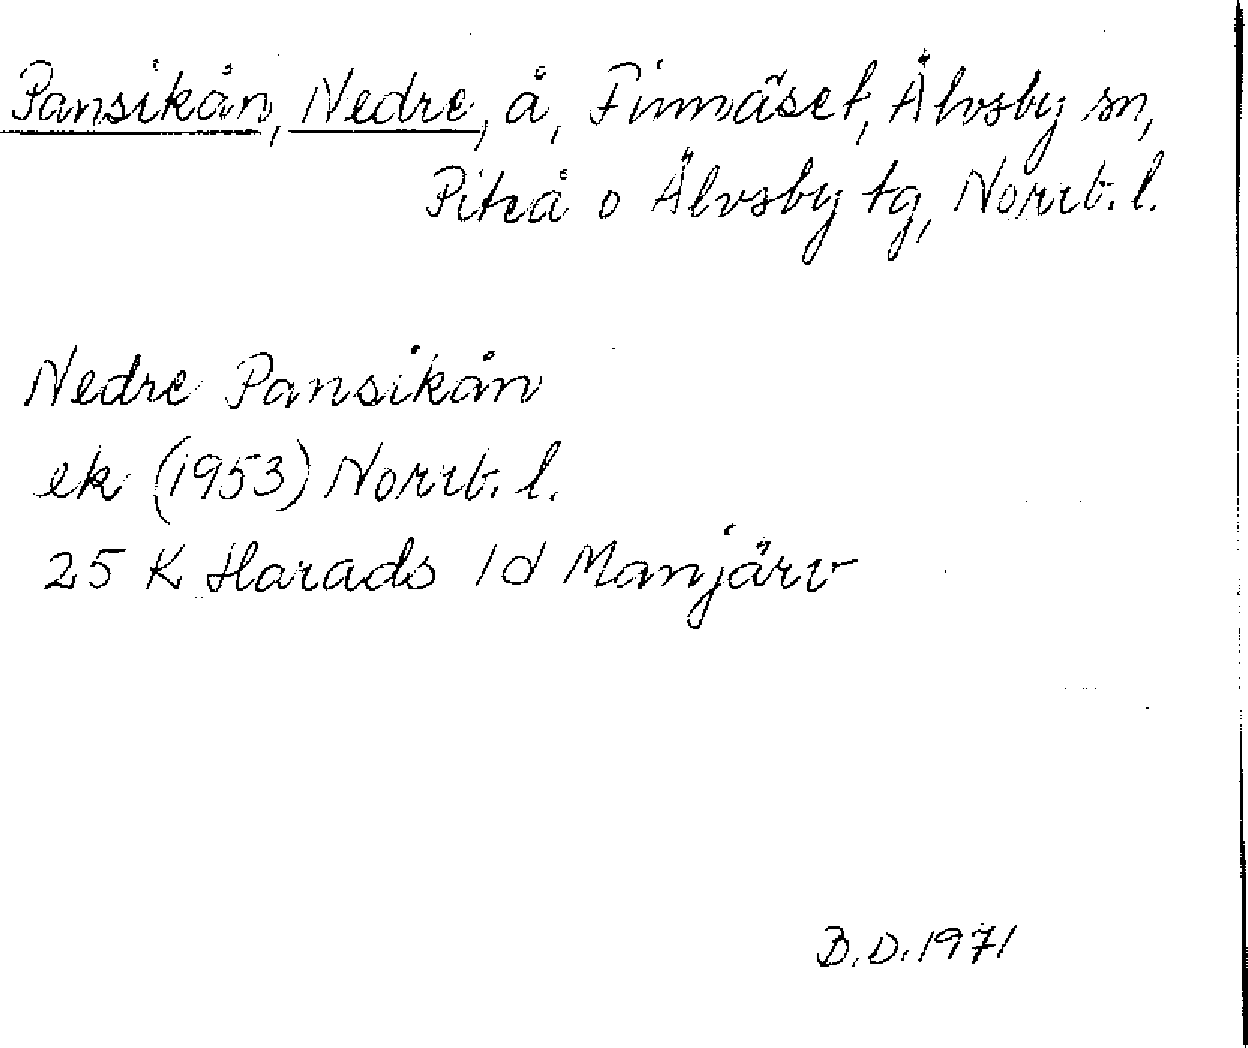 Pansikån, Nedre, å, Finnäset, Älvsby sn,
Piteå o Älvsby tg, Norrb. l.
Nedre Pansikån
ek (1953) Norrb. l.
25 K Harads 1d Manjärv
B.D. 1971